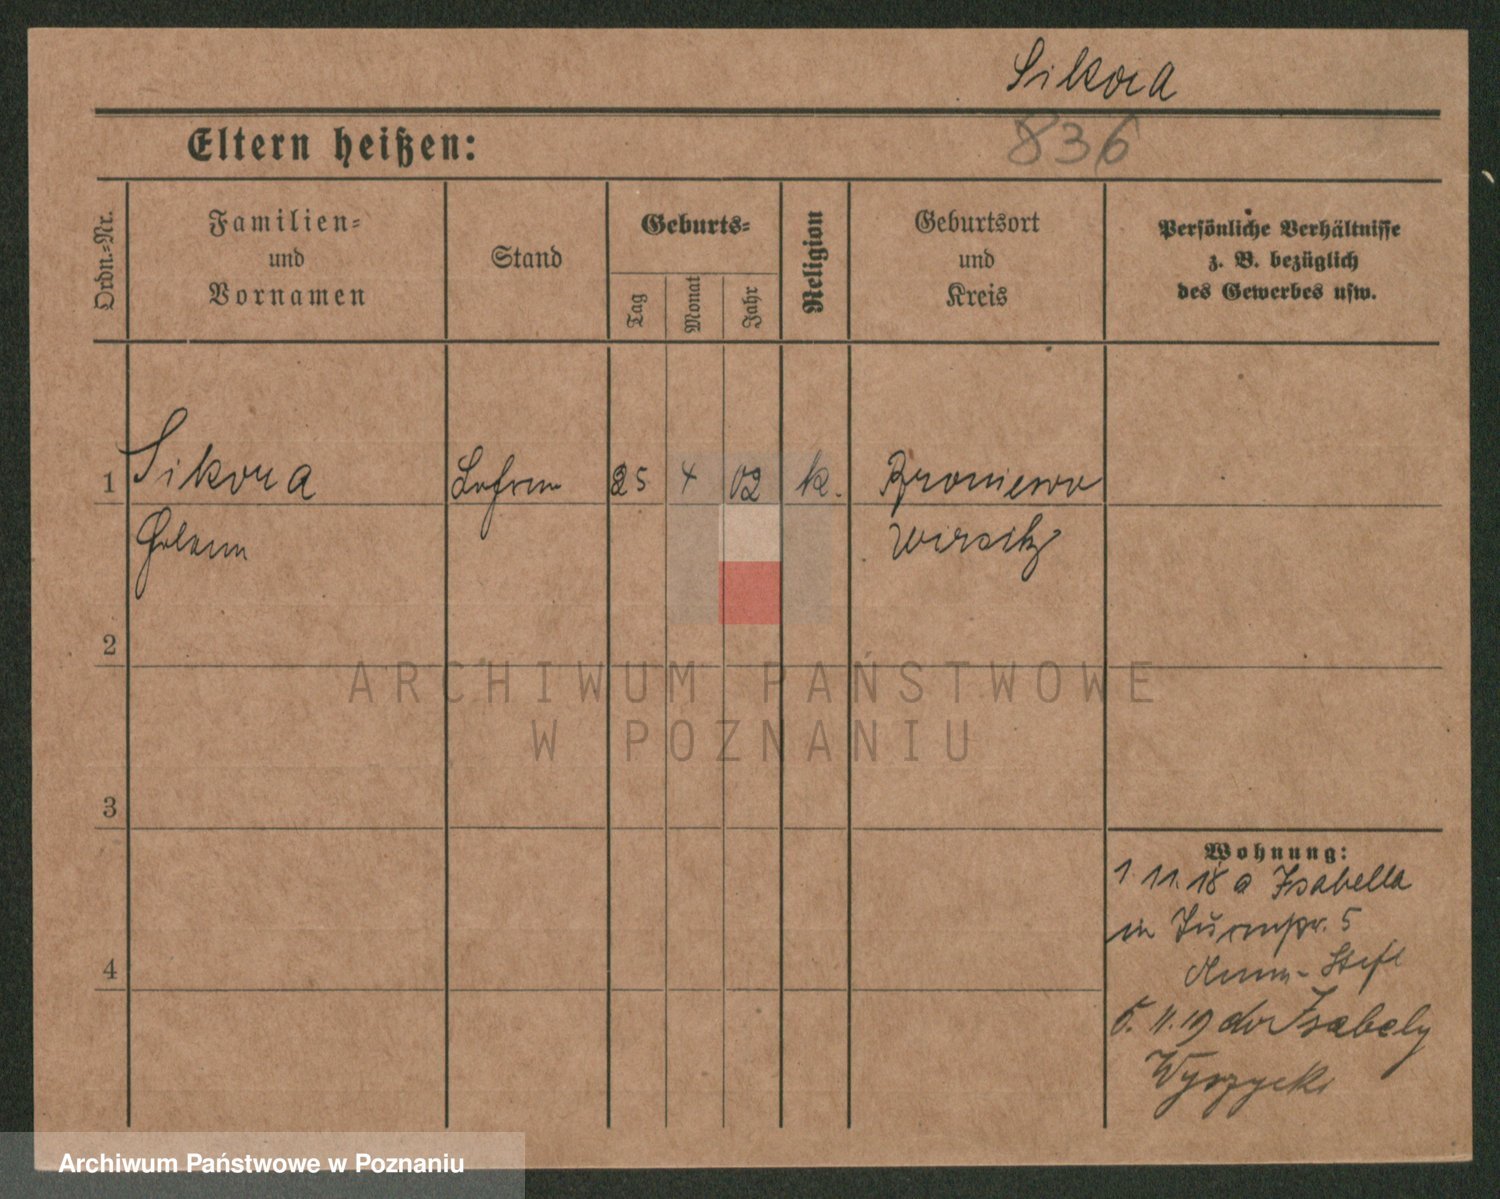 Sikora
836
Eltern heißen:
Ordn.=Nr.
Familien=
und
Vornamen
Stand
Geburts=
Tag
Monat
Jahr
Religion
Geburtsort
und
Kreis
Persönliche Verhältnisse
z. B. bezüglich
des Gewerbes usw.
1 Sikora 25 4 02 k. Broniewo
Wirsitz
2
3
4
Wohnung:
1 11. 18 a Isabella
in 5
5. 11. 19 do Isabely
Wyrzycki
ARCHIWUM PAŃSTWOWE
W POZNANIU
Archiwum Państwowe w Poznaniu